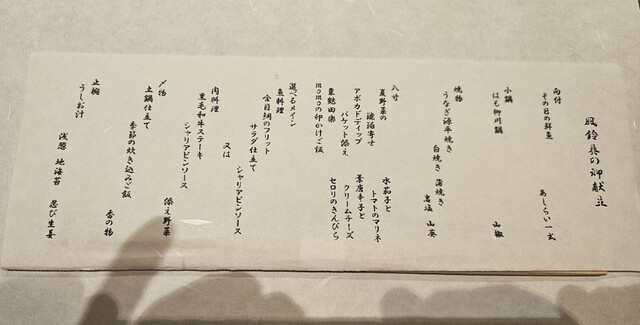 風鈴美の御献立
向付
その日の鮮魚 あしらい一式
小鍋
はも柳川鍋 山椒
焼物
うなぎ源平焼き 白焼き 蒲焼き
岩塩 山葵
八寸
夏野菜の
琥珀寄せ
水茄子と
トマトのマリネ
アボカドディップ
バケット添え
葉唐辛子と
クリームチーズ
粟麩田楽
セロリのきんぴら
momoの卵かけご飯
選べるメイン
魚料理
金目鯛のフリット
サラダ仕立て
シャリアピンソース
又は
肉料理
黒毛和牛ステーキ
シャリアピンソース
添え野菜
〆物
土鍋仕立て
季節の炊き込みご飯
香の物
止椀
うしお汁
浅葱 地海苔 忍び生姜